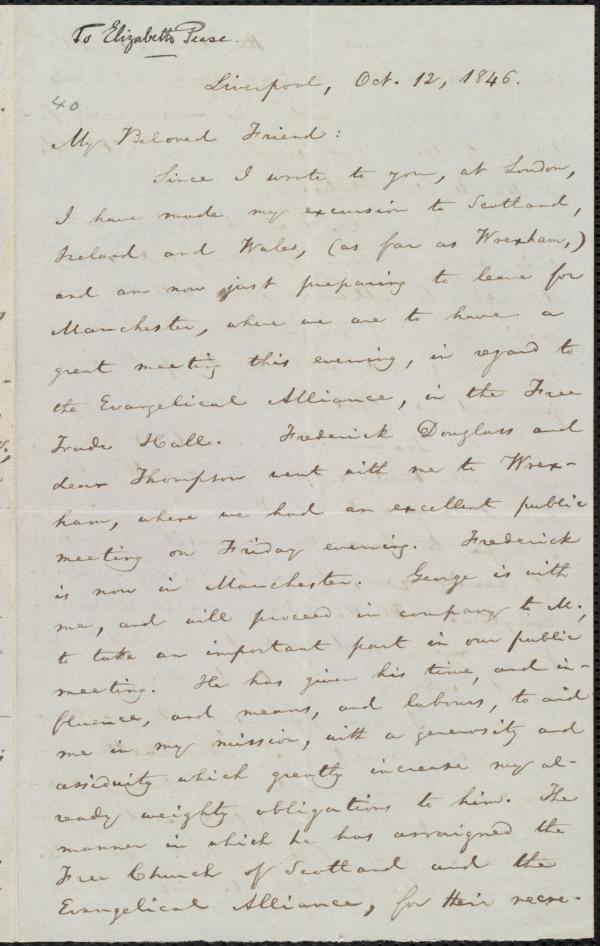 To Elizabeth Pease.
Liverpool, Oct. 12, 1846.
40
My Beloved Friend:
Since I wrote to you, at London,
I have made my excursion to Scotland,
Ireland and Wales, (as far as Wrexham,)
and am now just preparing to leave for
Manchester, where we are to have a
great meeting this evening, in regard to
the Evangelical Alliance, in the Free
Trade Hall. Frederick Douglass and
dear Thompson went with me to Wrex-
ham, where we had an excellent public
meeting on Friday evening. Frederick
is now in Manchester. George is with
me, and will proceed in company to M.,
to take an important part in our public
meeting. He has given his time, and in-
fluence, and means, and labours, to aid
me in my mission, with a generosity and
assiduity which greatly increase my al-
ready weighty obligations to him. The
manner in which he has arraigned the
Free Church of Scotland and the
Evangelical Alliance, for their recre-